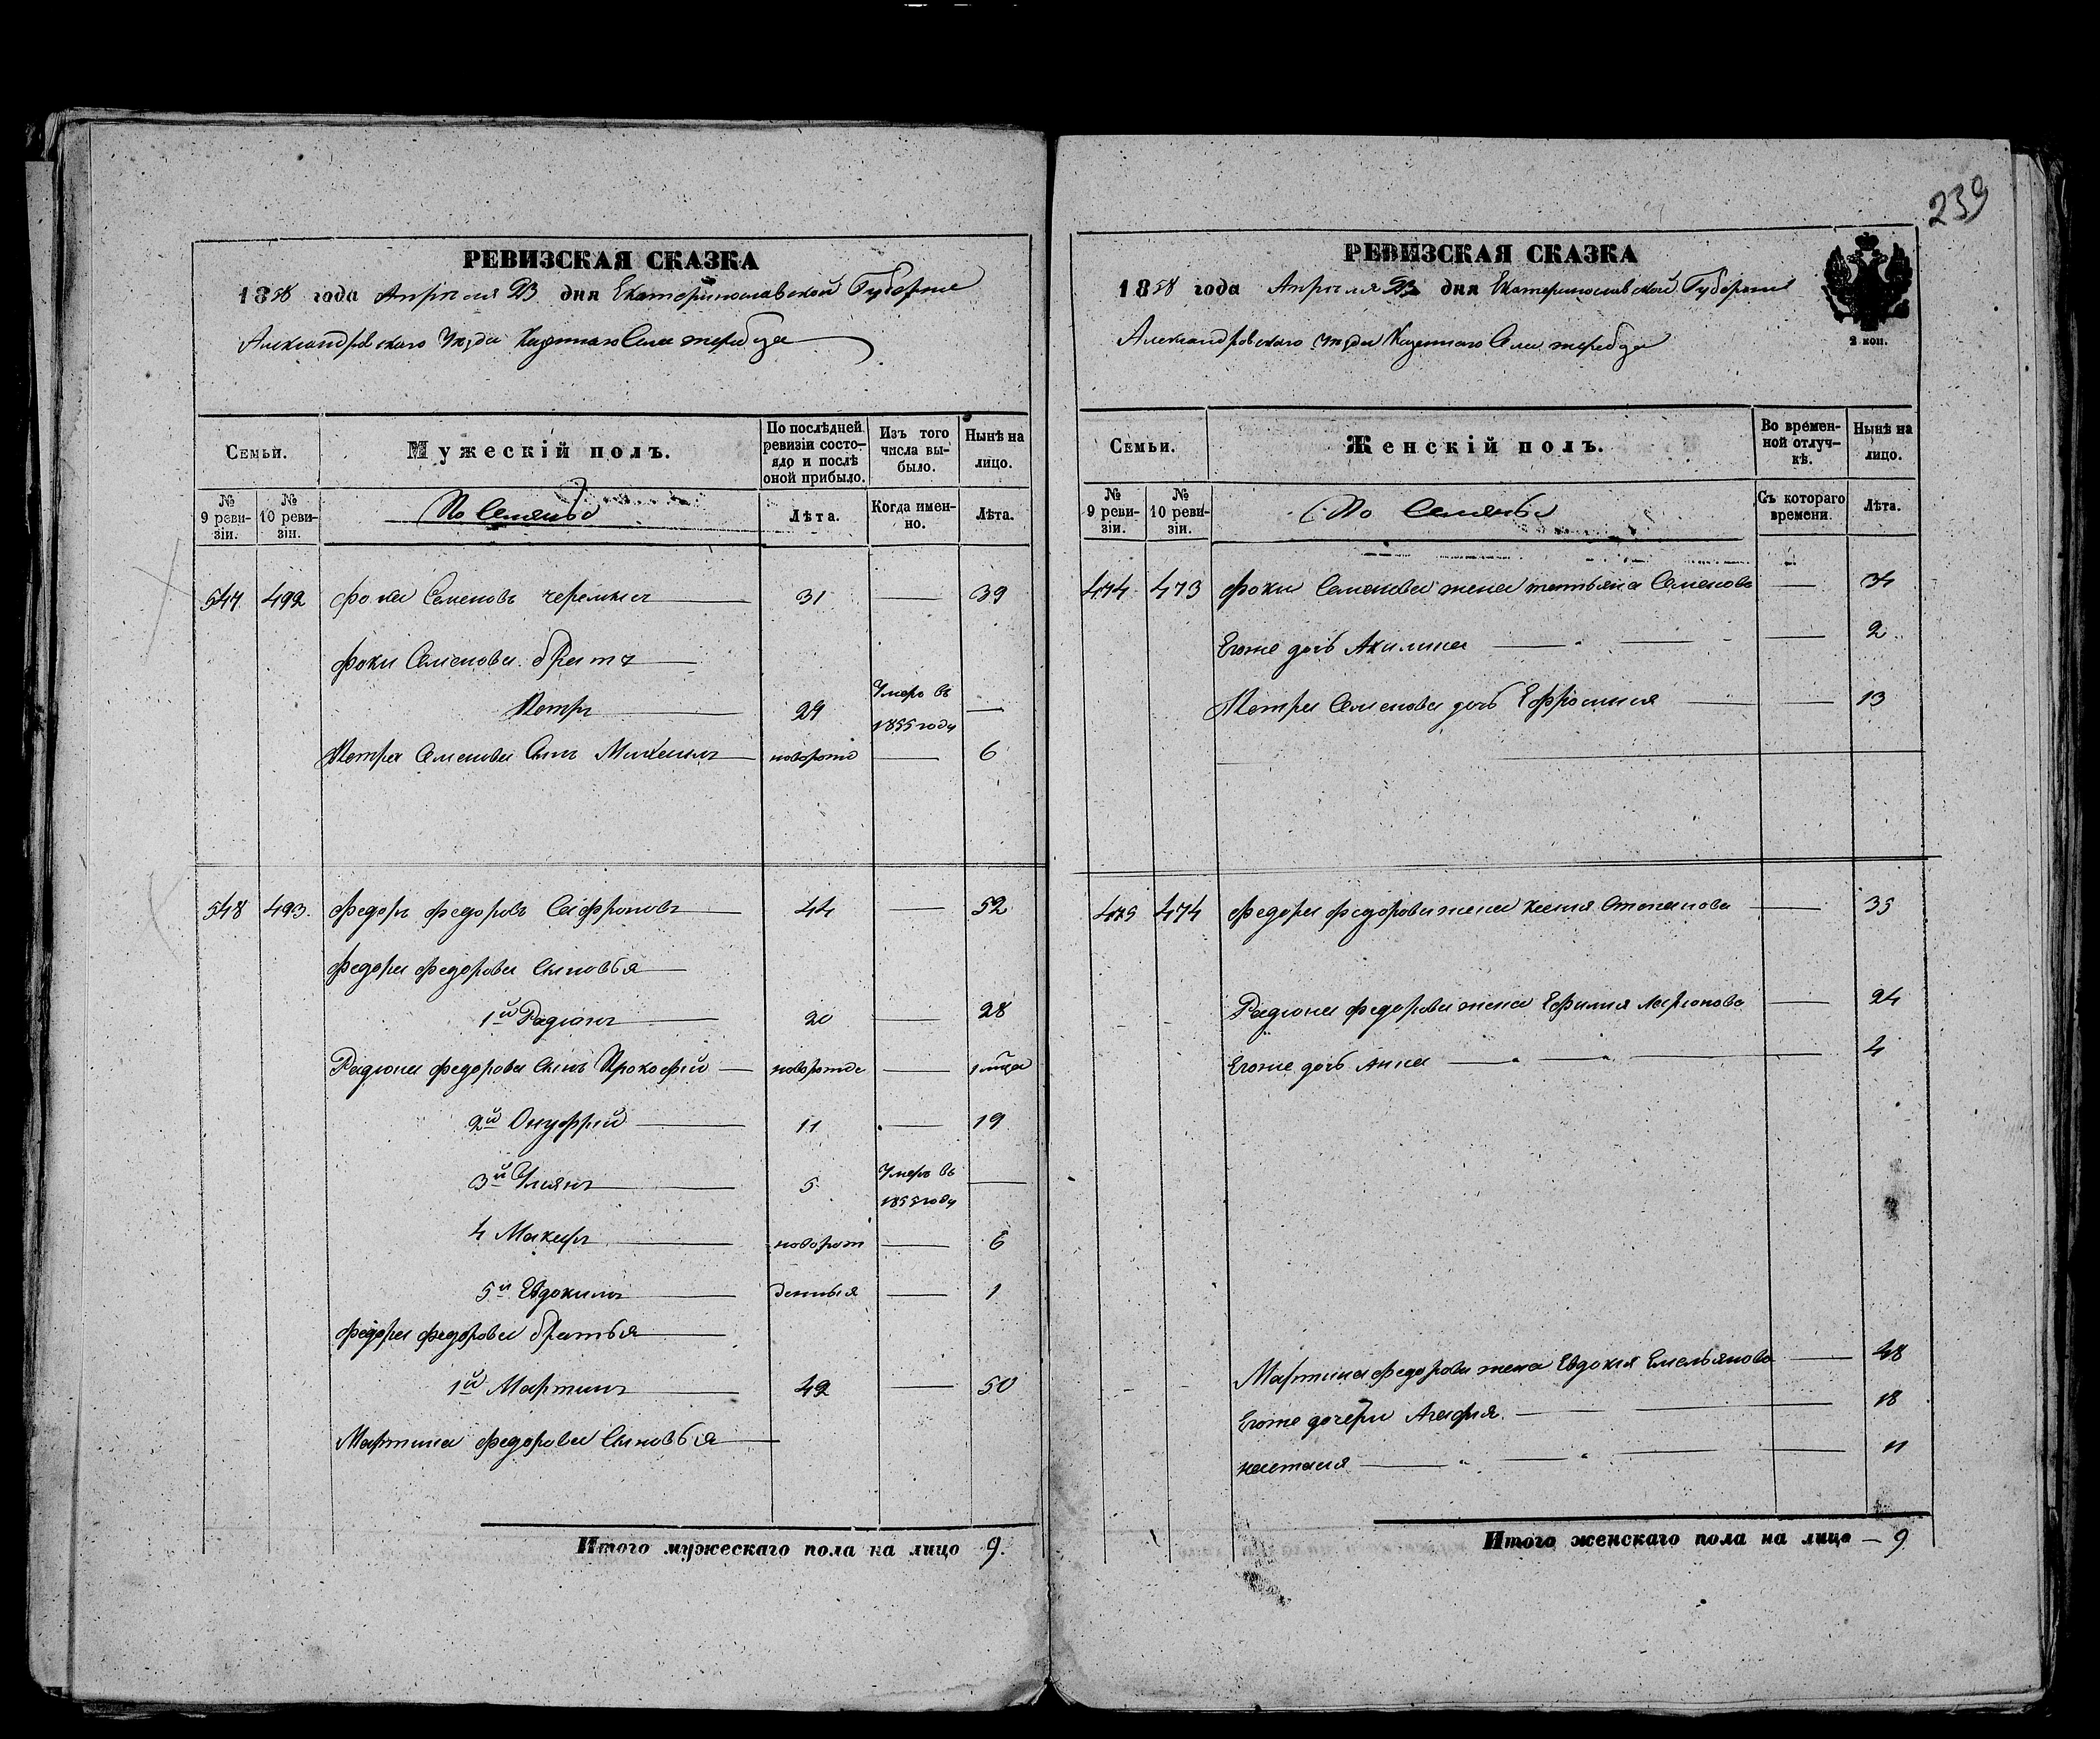 РЕВИЗСКАЯ СКАЗКА
1858 года Апреля 23 дня Екатеринославской Губернии
Александровского Уезда Казенного Села
Семьи.
Мужескій полъ.
По послѣдней ревизіи состояло и послѣ оной прибыло.
Изъ того числа выбыло.
Нынѣ на лицо.
№ 9 ревизіи.
№ 10 ревизіи.
Лѣта.
Когда именно.
Лѣта.
547 492 Фоки Семеновъ 31 — 39
Фоки Семенова братъ
Петръ 29 Умеръ въ 1855 году —
Петра Семенова Сынъ Михаилъ — 6
548 493. Федоръ Федоровъ 44 — 52
Федора Федорова Сыновья
1й Радіонъ 20 — 28
Радіона Федорова Сынъ Прокофій —
2й Онуфрій 11 — 19
3й Умеръ въ 1855 году —
4 Макаръ новорож — 6
5й Евдокимъ денныя — 1
Федора Федорова братья
1й Мартинъ 42 — 50
Мартина Федорова Сыновья
Итого мужескаго пола на лицо 9.
239
РЕВИЗСКАЯ СКАЗКА
1858 года Апреля 23 дня Екатеринославской Губернии
Александровского Уезда Казенного Села
2 коп.
Семьи.
Женскій полъ.
Во временной отлучкѣ.
Нынѣ на лицо.
№ 9 ревизіи.
№ 10 ревизіи.
Съ котораго времени.
Лѣта.
474 473 Фоки Семенова жена татьяна Семенова — 34
Егоже дочь Акилина — 2
Петра Семенова дочь Ефросиния — 13
475 474 Федора Федорова жена Степанова — 35
Радіона Федорова жена Ефимия — 24
Егоже дочь Анна — 4
Мартина Федорова жена Евдокия Емельянова — 48
Егоже дочери Агафия — 18
— 11
Итого женскаго пола на лицо — 9